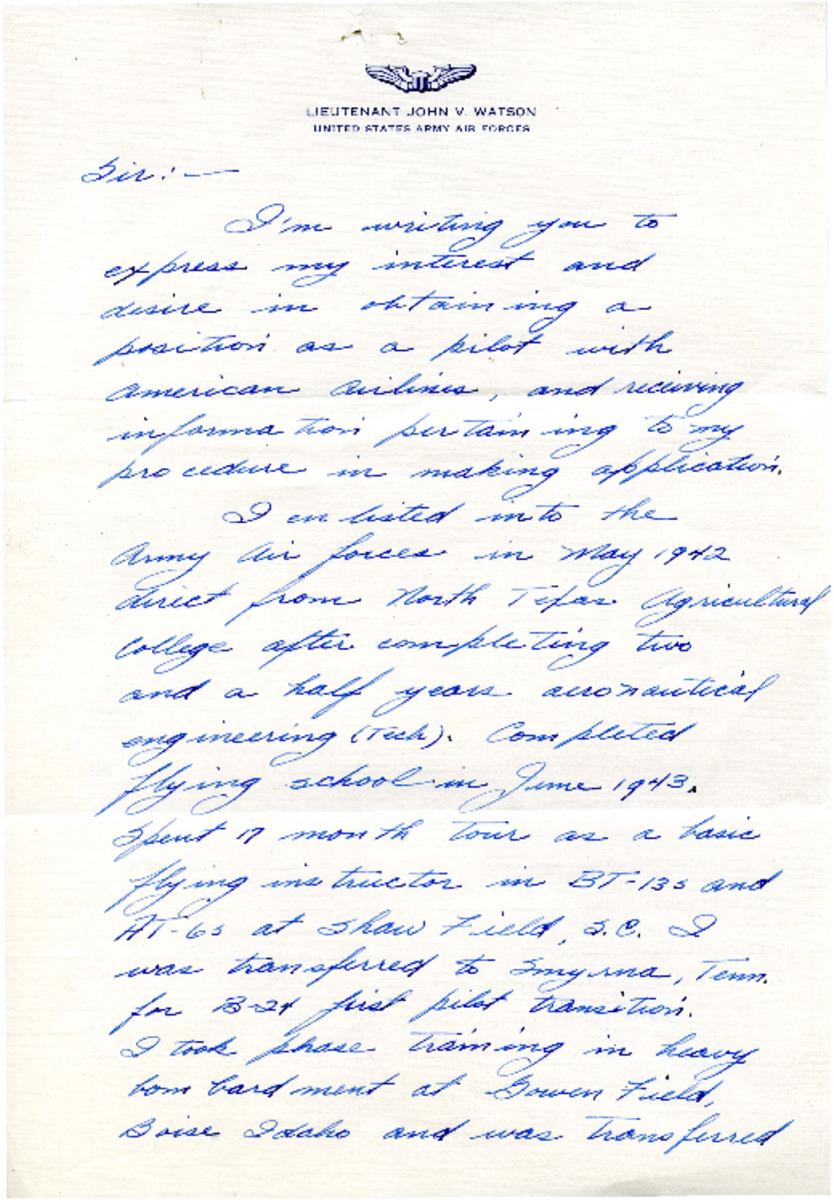 LIEUTENANT JOHN V. WATSON
UNITED STATES ARMY AIR FORCES
Sir:—
I'm writing you to
express my interest and
desire in obtaining a
position as a pilot with
American Airlines, and receiving
information pertaining to my
procedure in making application.
I enlisted into the
Army Air forces in May 1942
direct from North Texas Agricultural
College after completing two
and a half years aeronautical
engineering (Tech). Completed
flying school in June 1943.
Spent 17 month tour as a basic
flying instructor in BT-13s and
AT-6s at Shaw Field, S.C. I
was transferred to Smyrna, Tenn.
for B-24 first pilot transition.
I took phase training in heavy
bombardment at Gowen Field,
Boise Idaho and was transferred